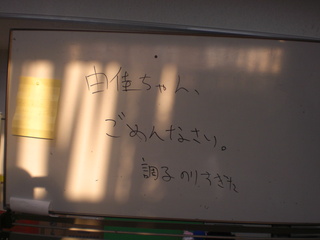 由佳ちゃん、
ごめんなさい。
調子のりすぎた